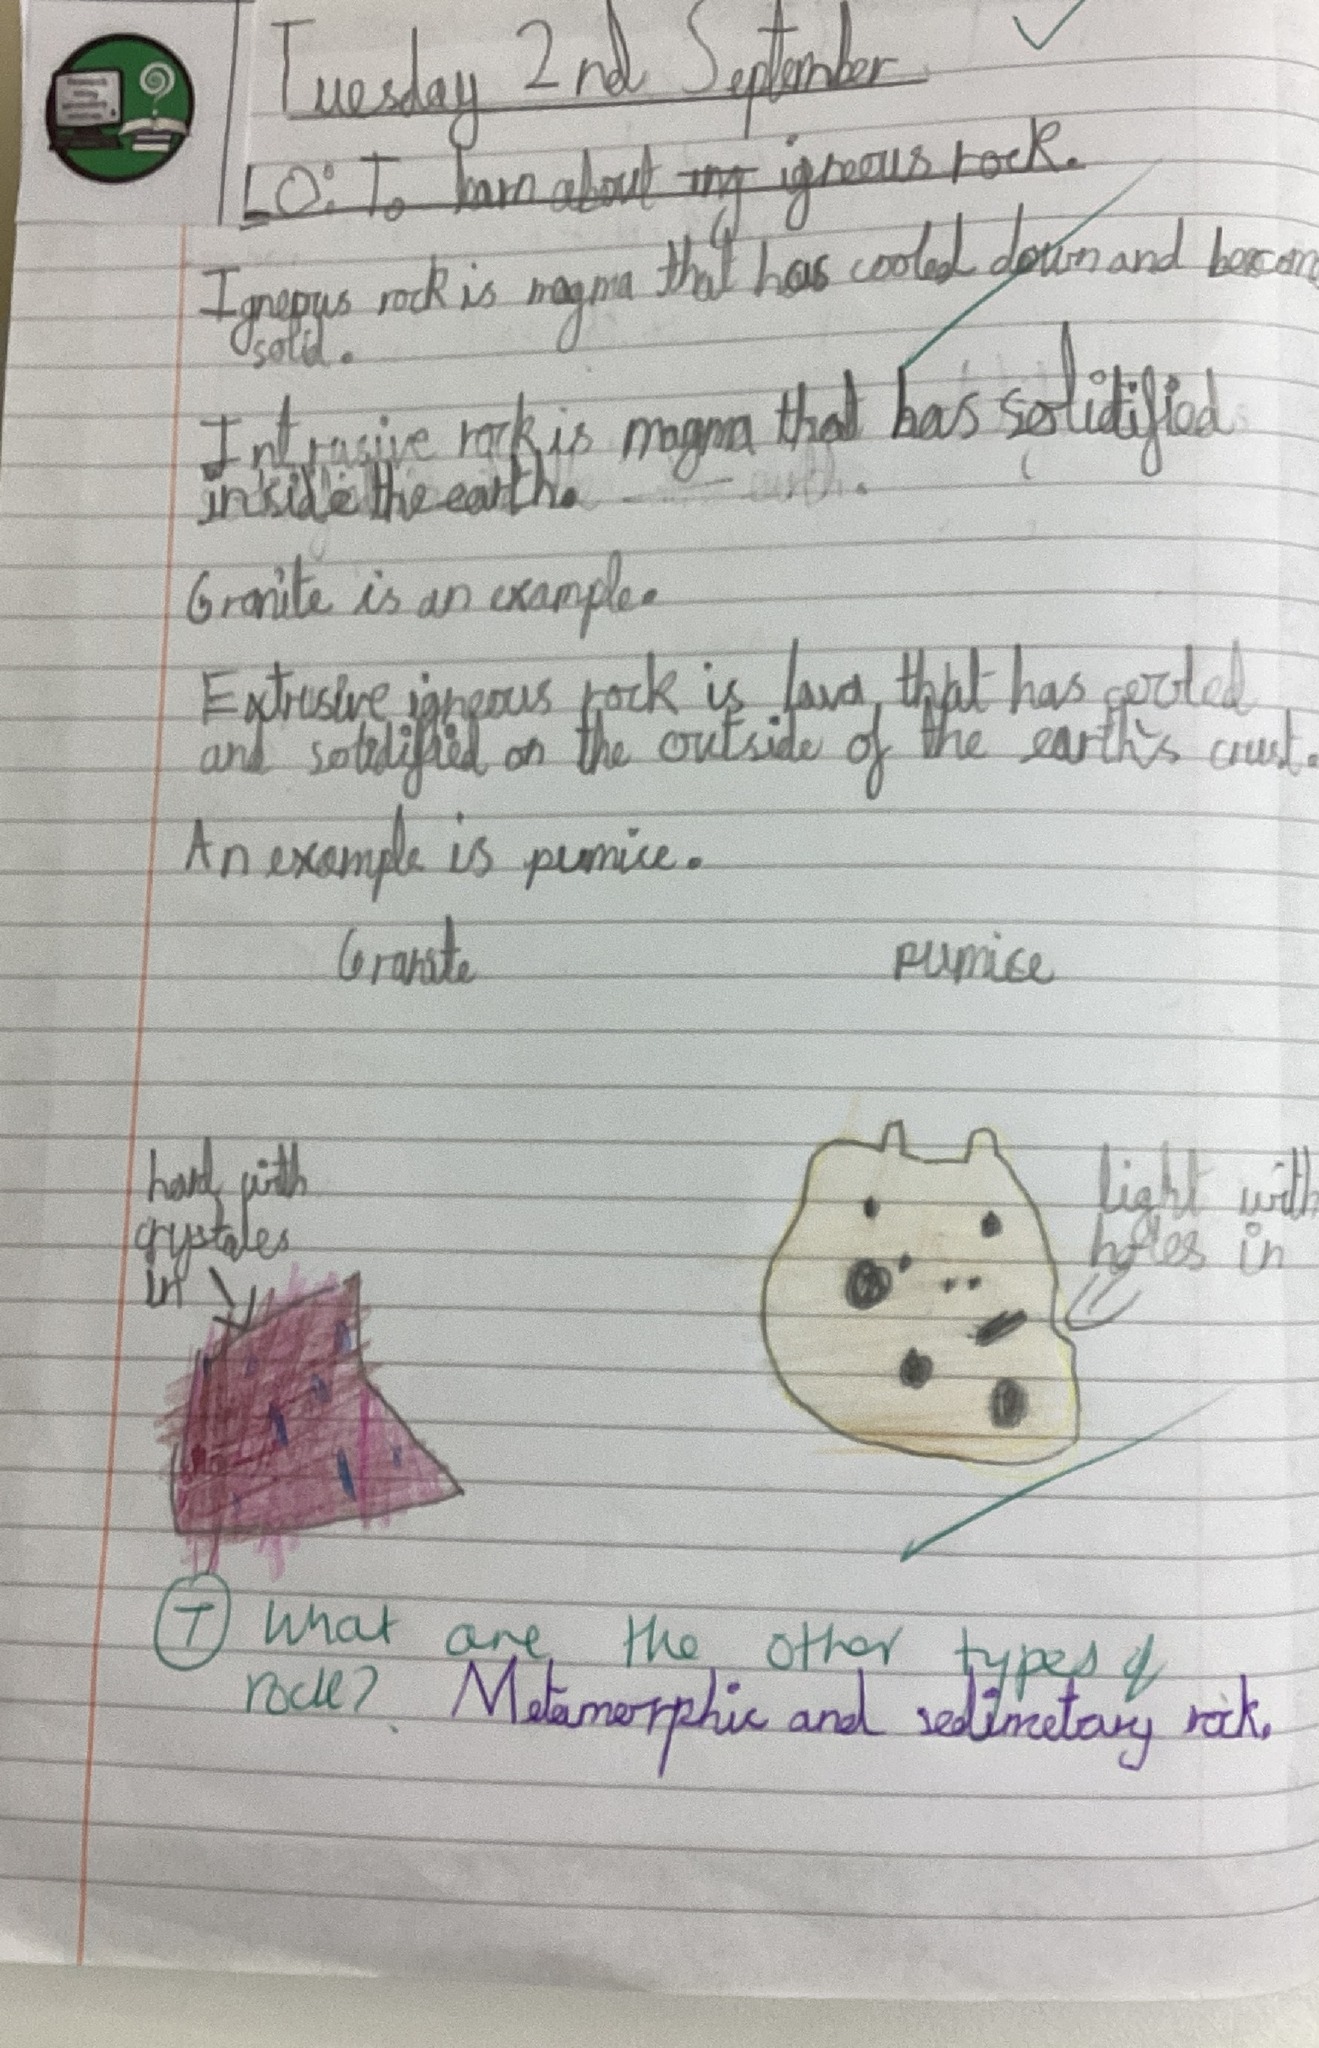 Tuesday 2nd September
LO: To learn about ing igneous rock.
Igneous rock is magma that has cooled down and becom
solid.
Intrusive rock is magma that has solidified
inside the earth. earth.
Granite is an example.
Extrusive igneous rock is lava, that has cooled
and soldified on the outside of the earth's crust.
An example is pumice.
Granite pumice
hard with
crystales
in
light with
holes in
T What are the other types of
rock? Metamorphic and sedimetary rock.